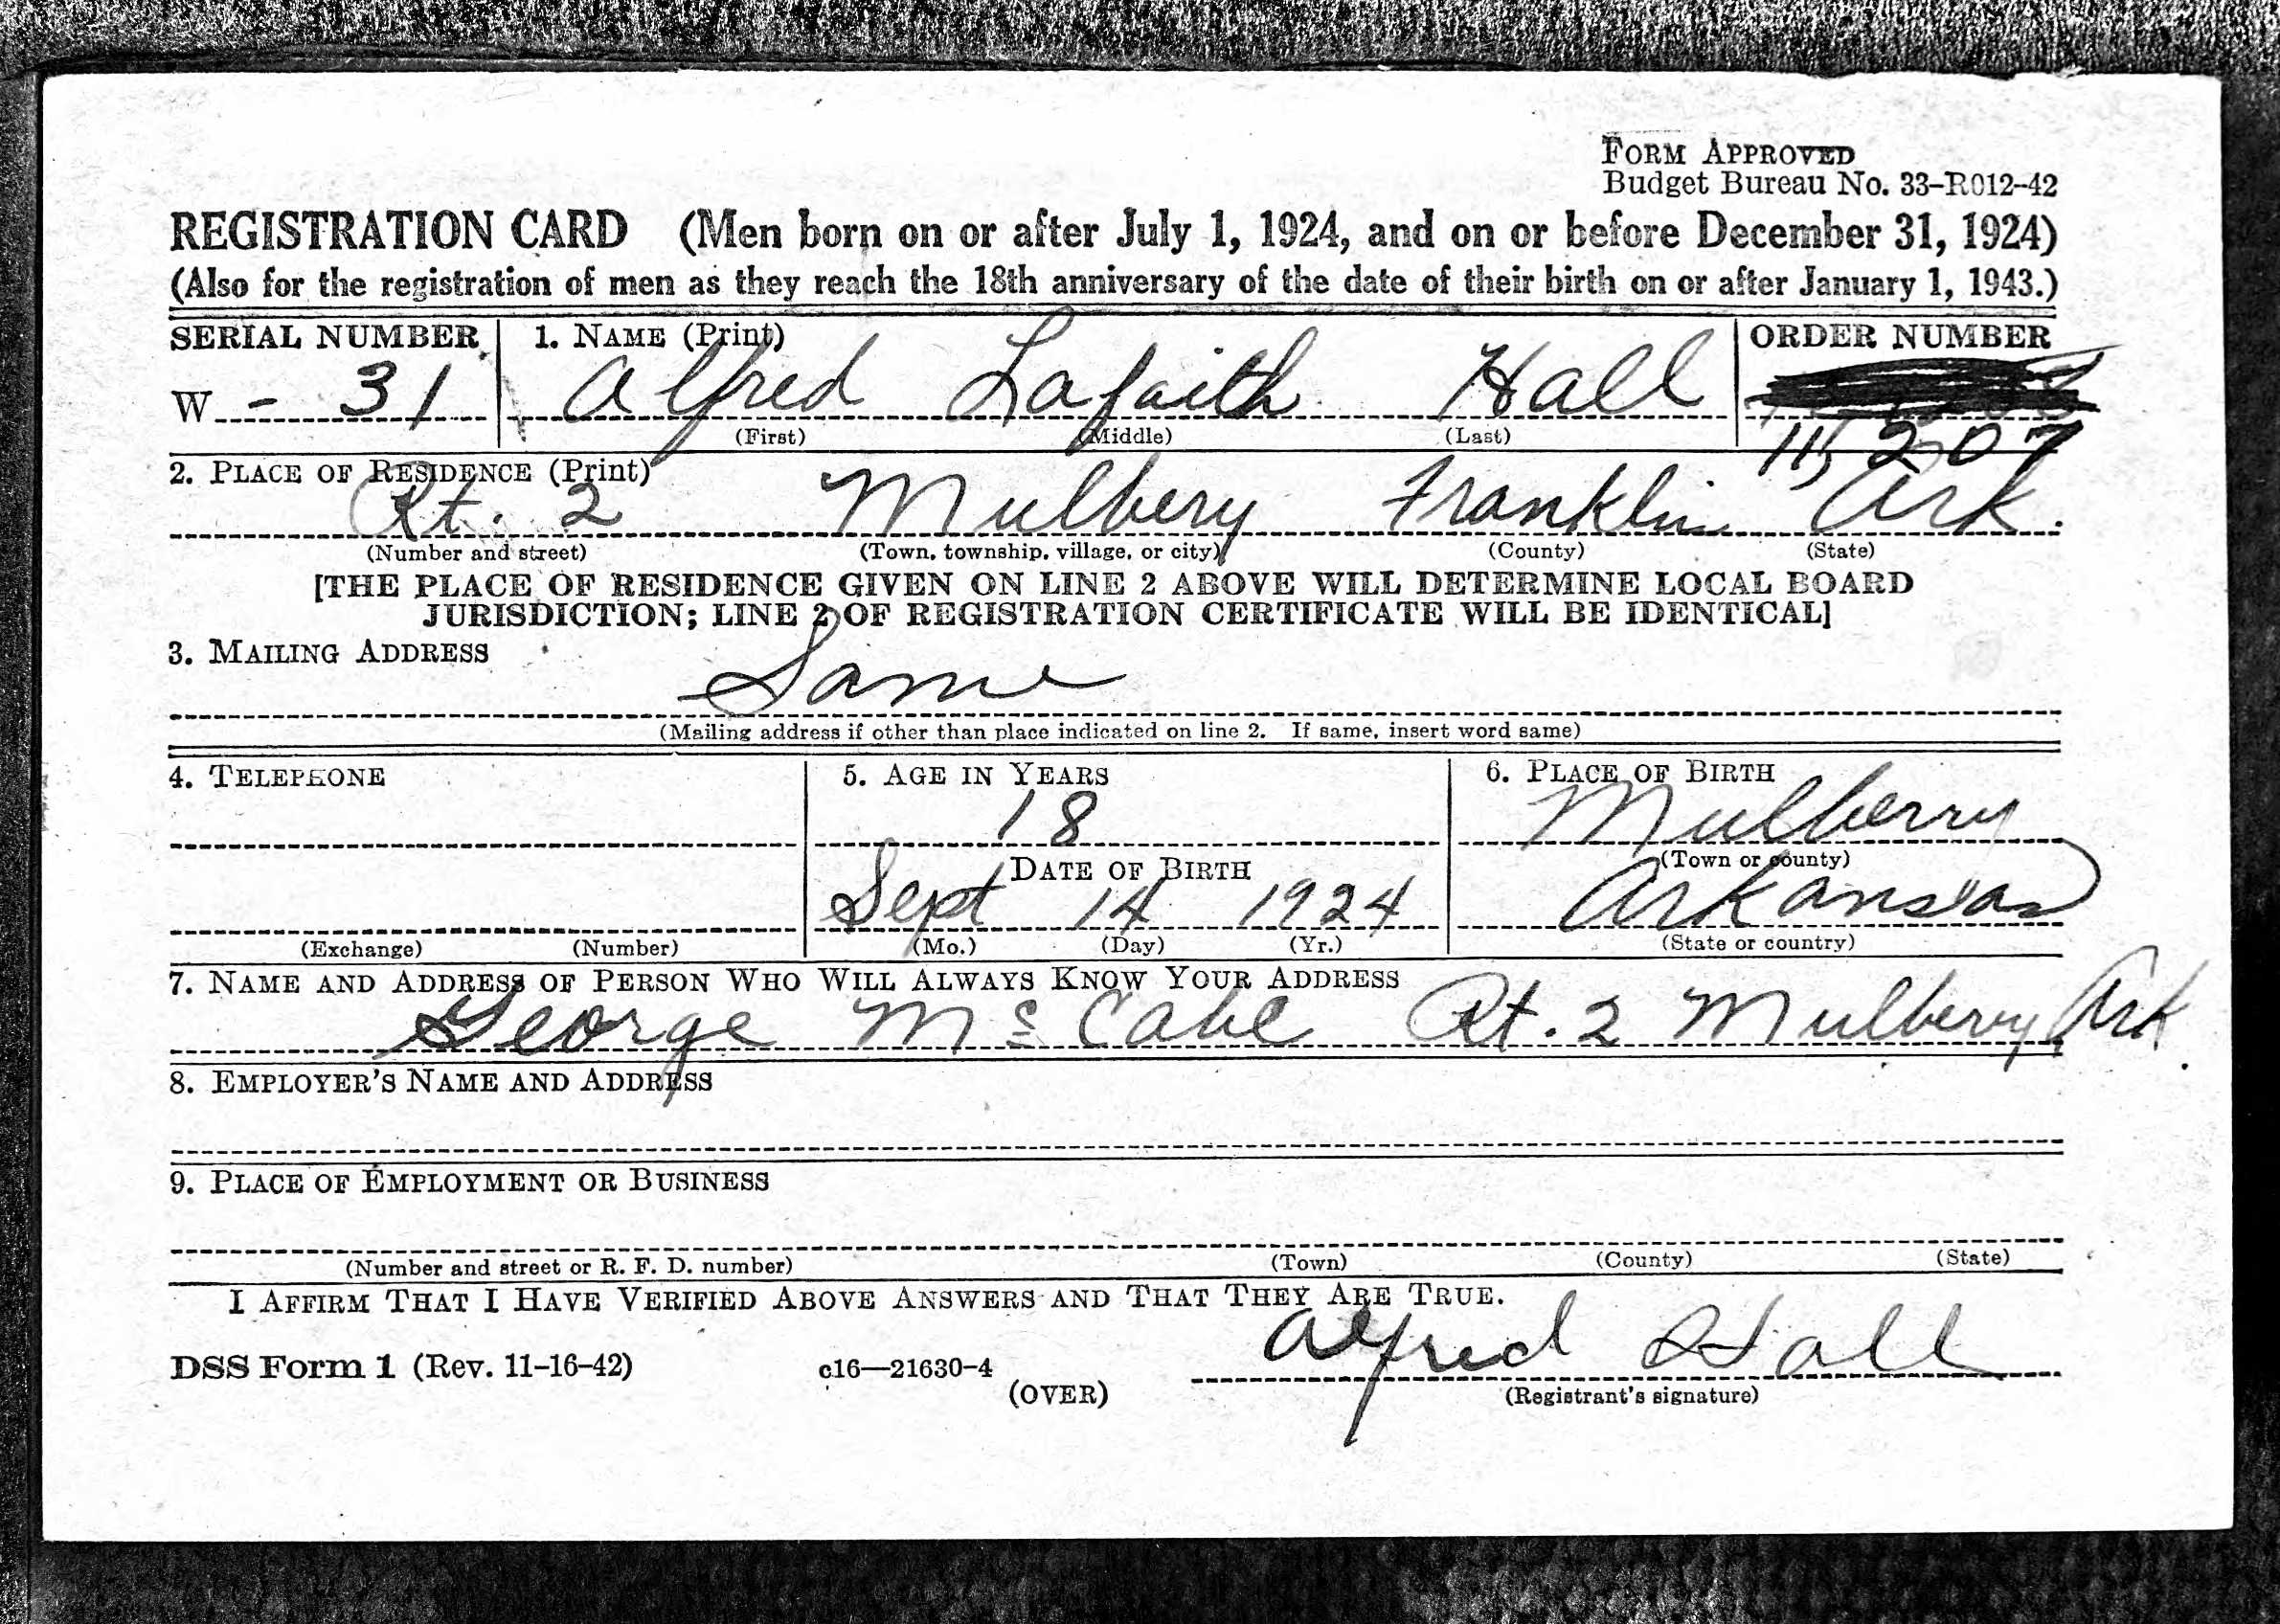 FORM APPROVED
Budget Bureau No. 33-R012-42
REGISTRATION CARD (Men born on or after July 1, 1924, and on or before December 31, 1924)
(Also for the registration of men as they reach the 18th anniversary of the date of their birth on or after January 1, 1943.)
SERIAL NUMBER 1. NAME (Print) ORDER NUMBER
W - 31 Alfred Lafaith Hall
(First) (Middle) (Last)
11,207
2. PLACE OF RESIDENCE (Print)
Rt. 2 Mulbery Franklin Ark.
(Number and street) (Town, township, village, or city) (County) (State)
[THE PLACE OF RESIDENCE GIVEN ON LINE 2 ABOVE WILL DETERMINE LOCAL BOARD
JURISDICTION; LINE 2 OF REGISTRATION CERTIFICATE WILL BE IDENTICAL]
3. MAILING ADDRESS
Same
(Mailing address if other than place indicated on line 2. If same, insert word same)
4. TELEPHONE 5. AGE IN YEARS 6. PLACE OF BIRTH
18 Mulberry
DATE OF BIRTH (Town or county)
Sept 14 1924 Arkansas
(Exchange) (Number) (Mo.) (Day) (Yr.) (State or country)
7. NAME AND ADDRESS OF PERSON WHO WILL ALWAYS KNOW YOUR ADDRESS
George Mc Cabe Rt. 2 Mulbery, Ark.
8. EMPLOYER'S NAME AND ADDRESS
9. PLACE OF EMPLOYMENT OR BUSINESS
(Number and street or R. F. D. number) (Town) (County) (State)
I AFFIRM THAT I HAVE VERIFIED ABOVE ANSWERS AND THAT THEY ARE TRUE.
Alfred Hall
DSS Form 1 (Rev. 11-16-42) c16—21630-4
(OVER) (Registrant's signature)